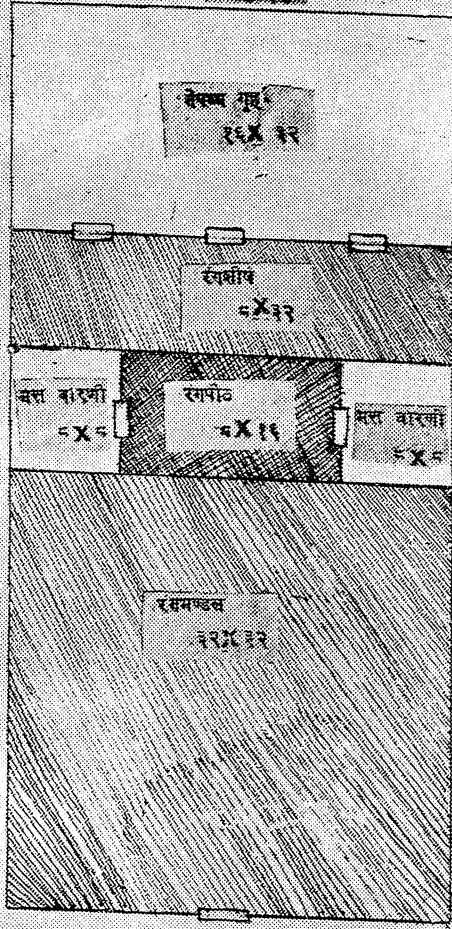 नेपथ्य गृह
१६X ३२
रंगशीर्ष
८X३२
मत्त वारणी
८X८
रंगपीठ
८X१६
मत्त वारणी
८X८
रंगमण्डल
३२X३२